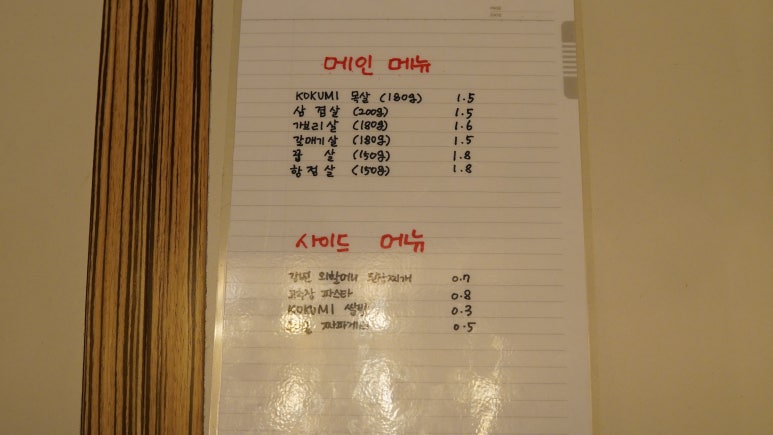 PAGE
DATE
메인 메뉴
KOKUMI 목살 (180g) 1.5
삼 겹 살 (200g) 1.5
가브리 살 (180g) 1.6
갈매기 살 (180g) 1.5
꼽 살 (150g) 1.8
항 정 살 (150g) 1.8
사이드 메뉴
강원 외할머니 된장찌개 0.7
고추장 파스타 0.8
KOKUMI 0.3
짜파게티 0.5